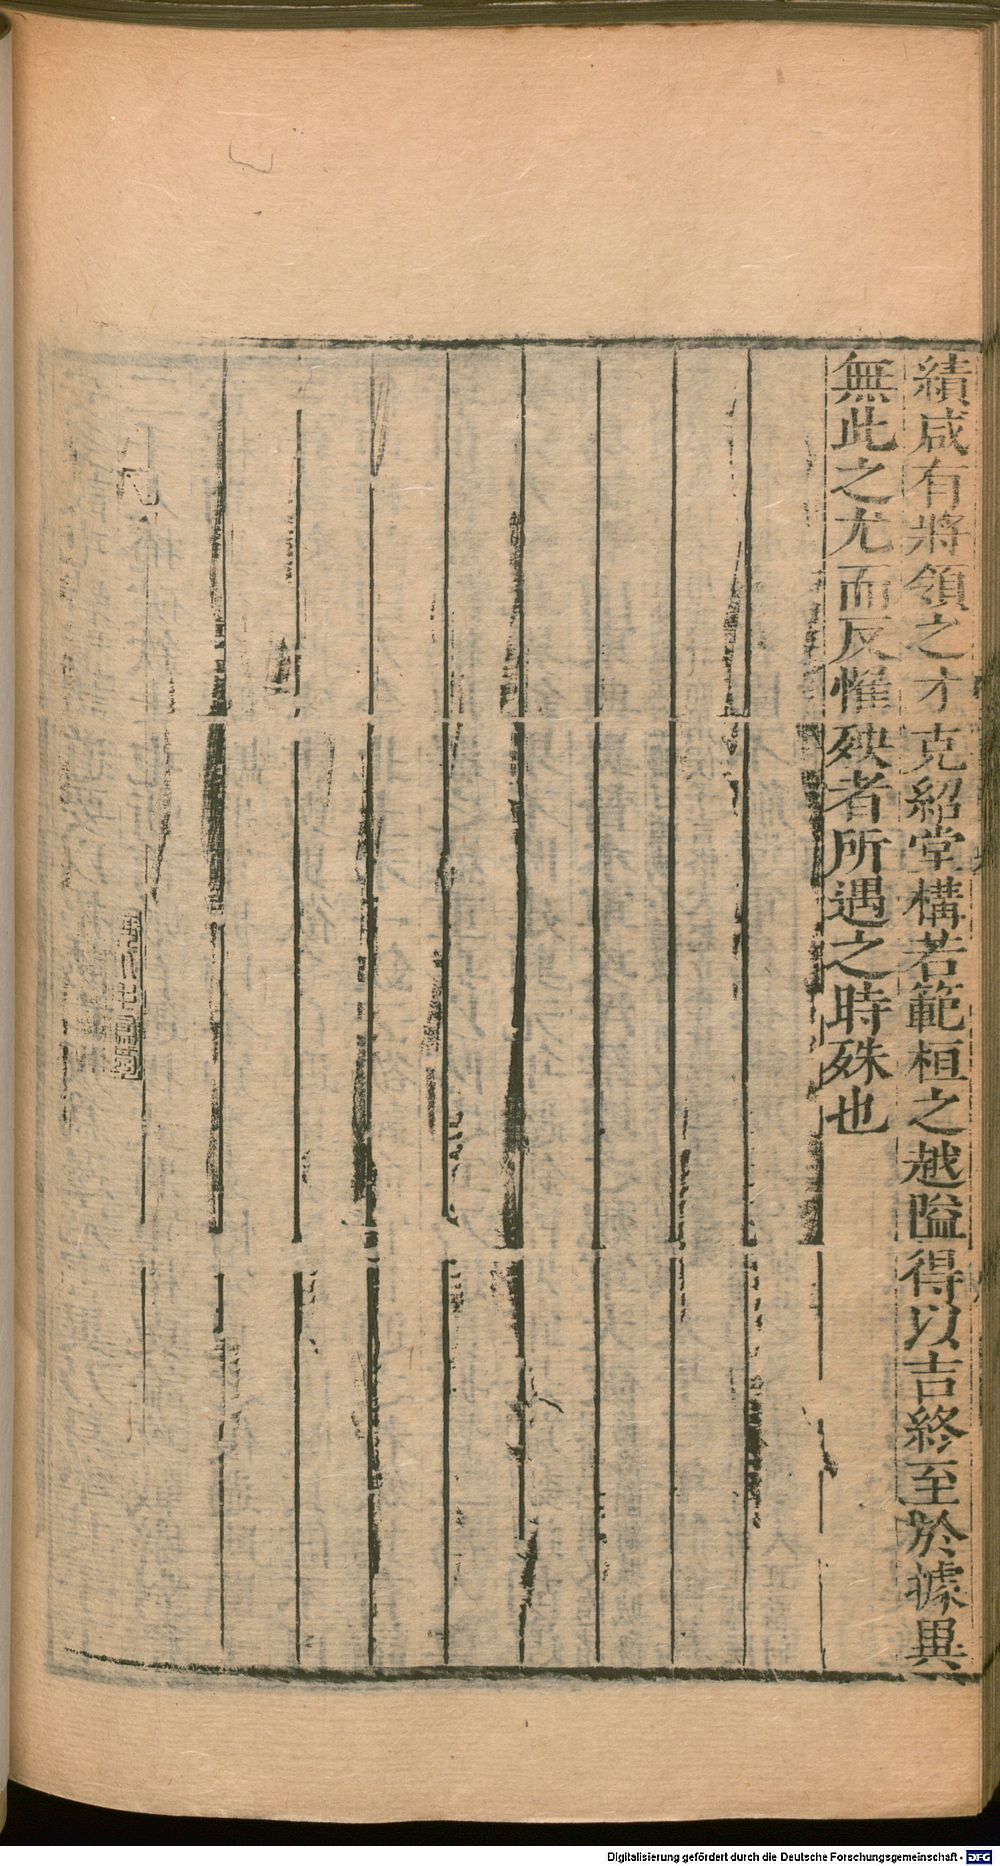 績咸有將領之才克紹堂構若範桓之越隘得以吉終至於據異
無此之尤而反惟殃者所遇之時殊也
Digitalisierung gefördert durch die Deutsche Forschungsgemeinschaft - DFG